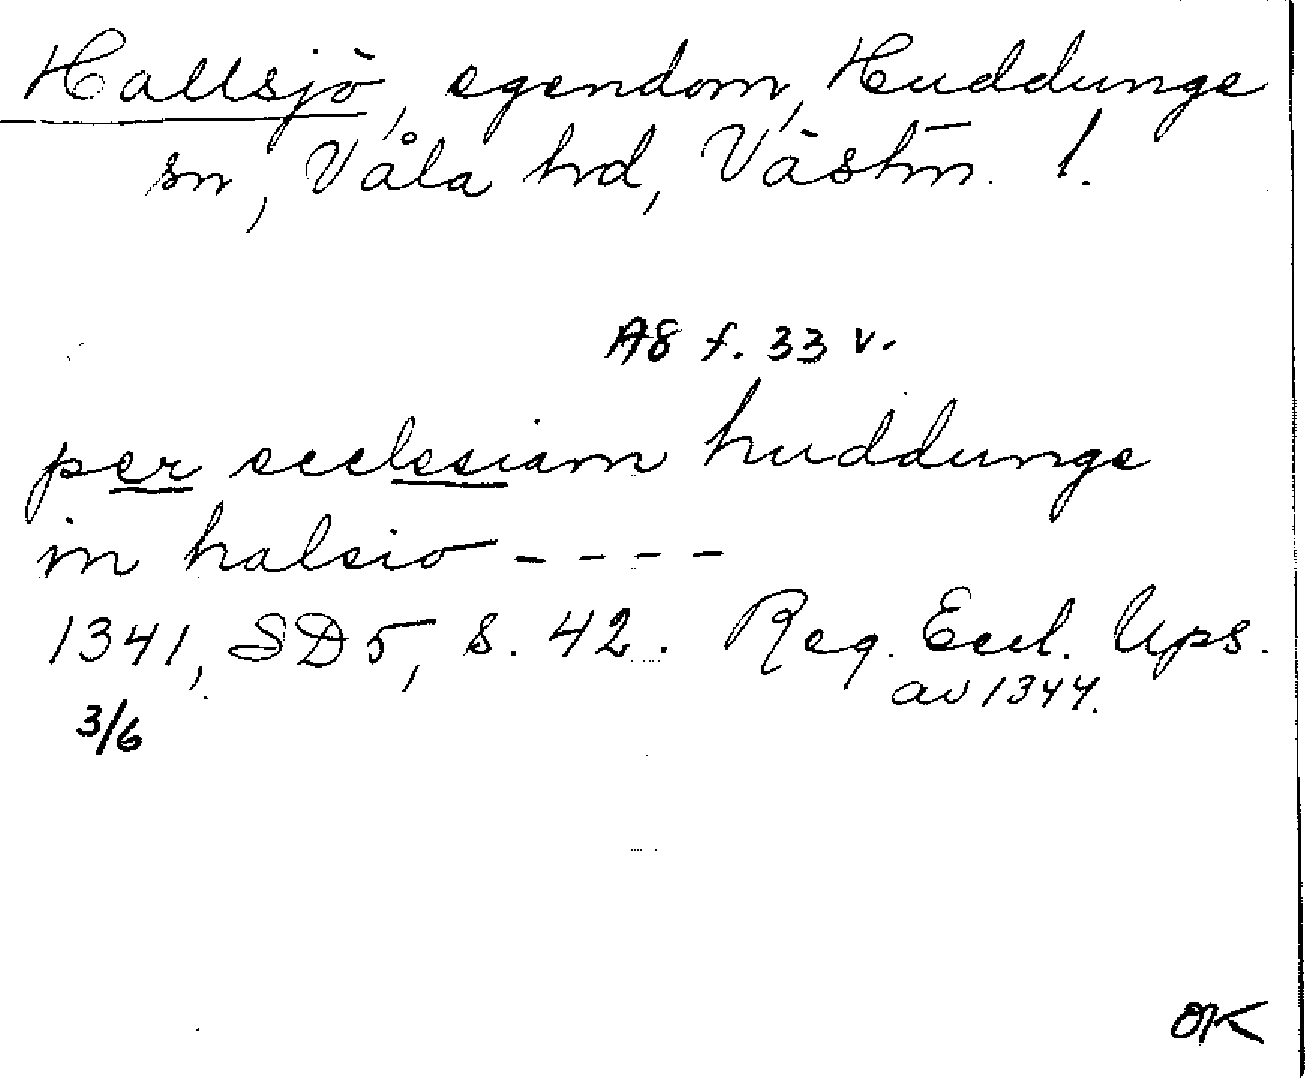 Hallsjö, egendom, Huddunge
sn, Våla hd, Västm. l.
A8 f. 33 v.
per ecclesiam huddunge
in halsio ----
1341, SD5, s. 42. Reg. Eccl. Ups.
av 1344.
3/6
OK